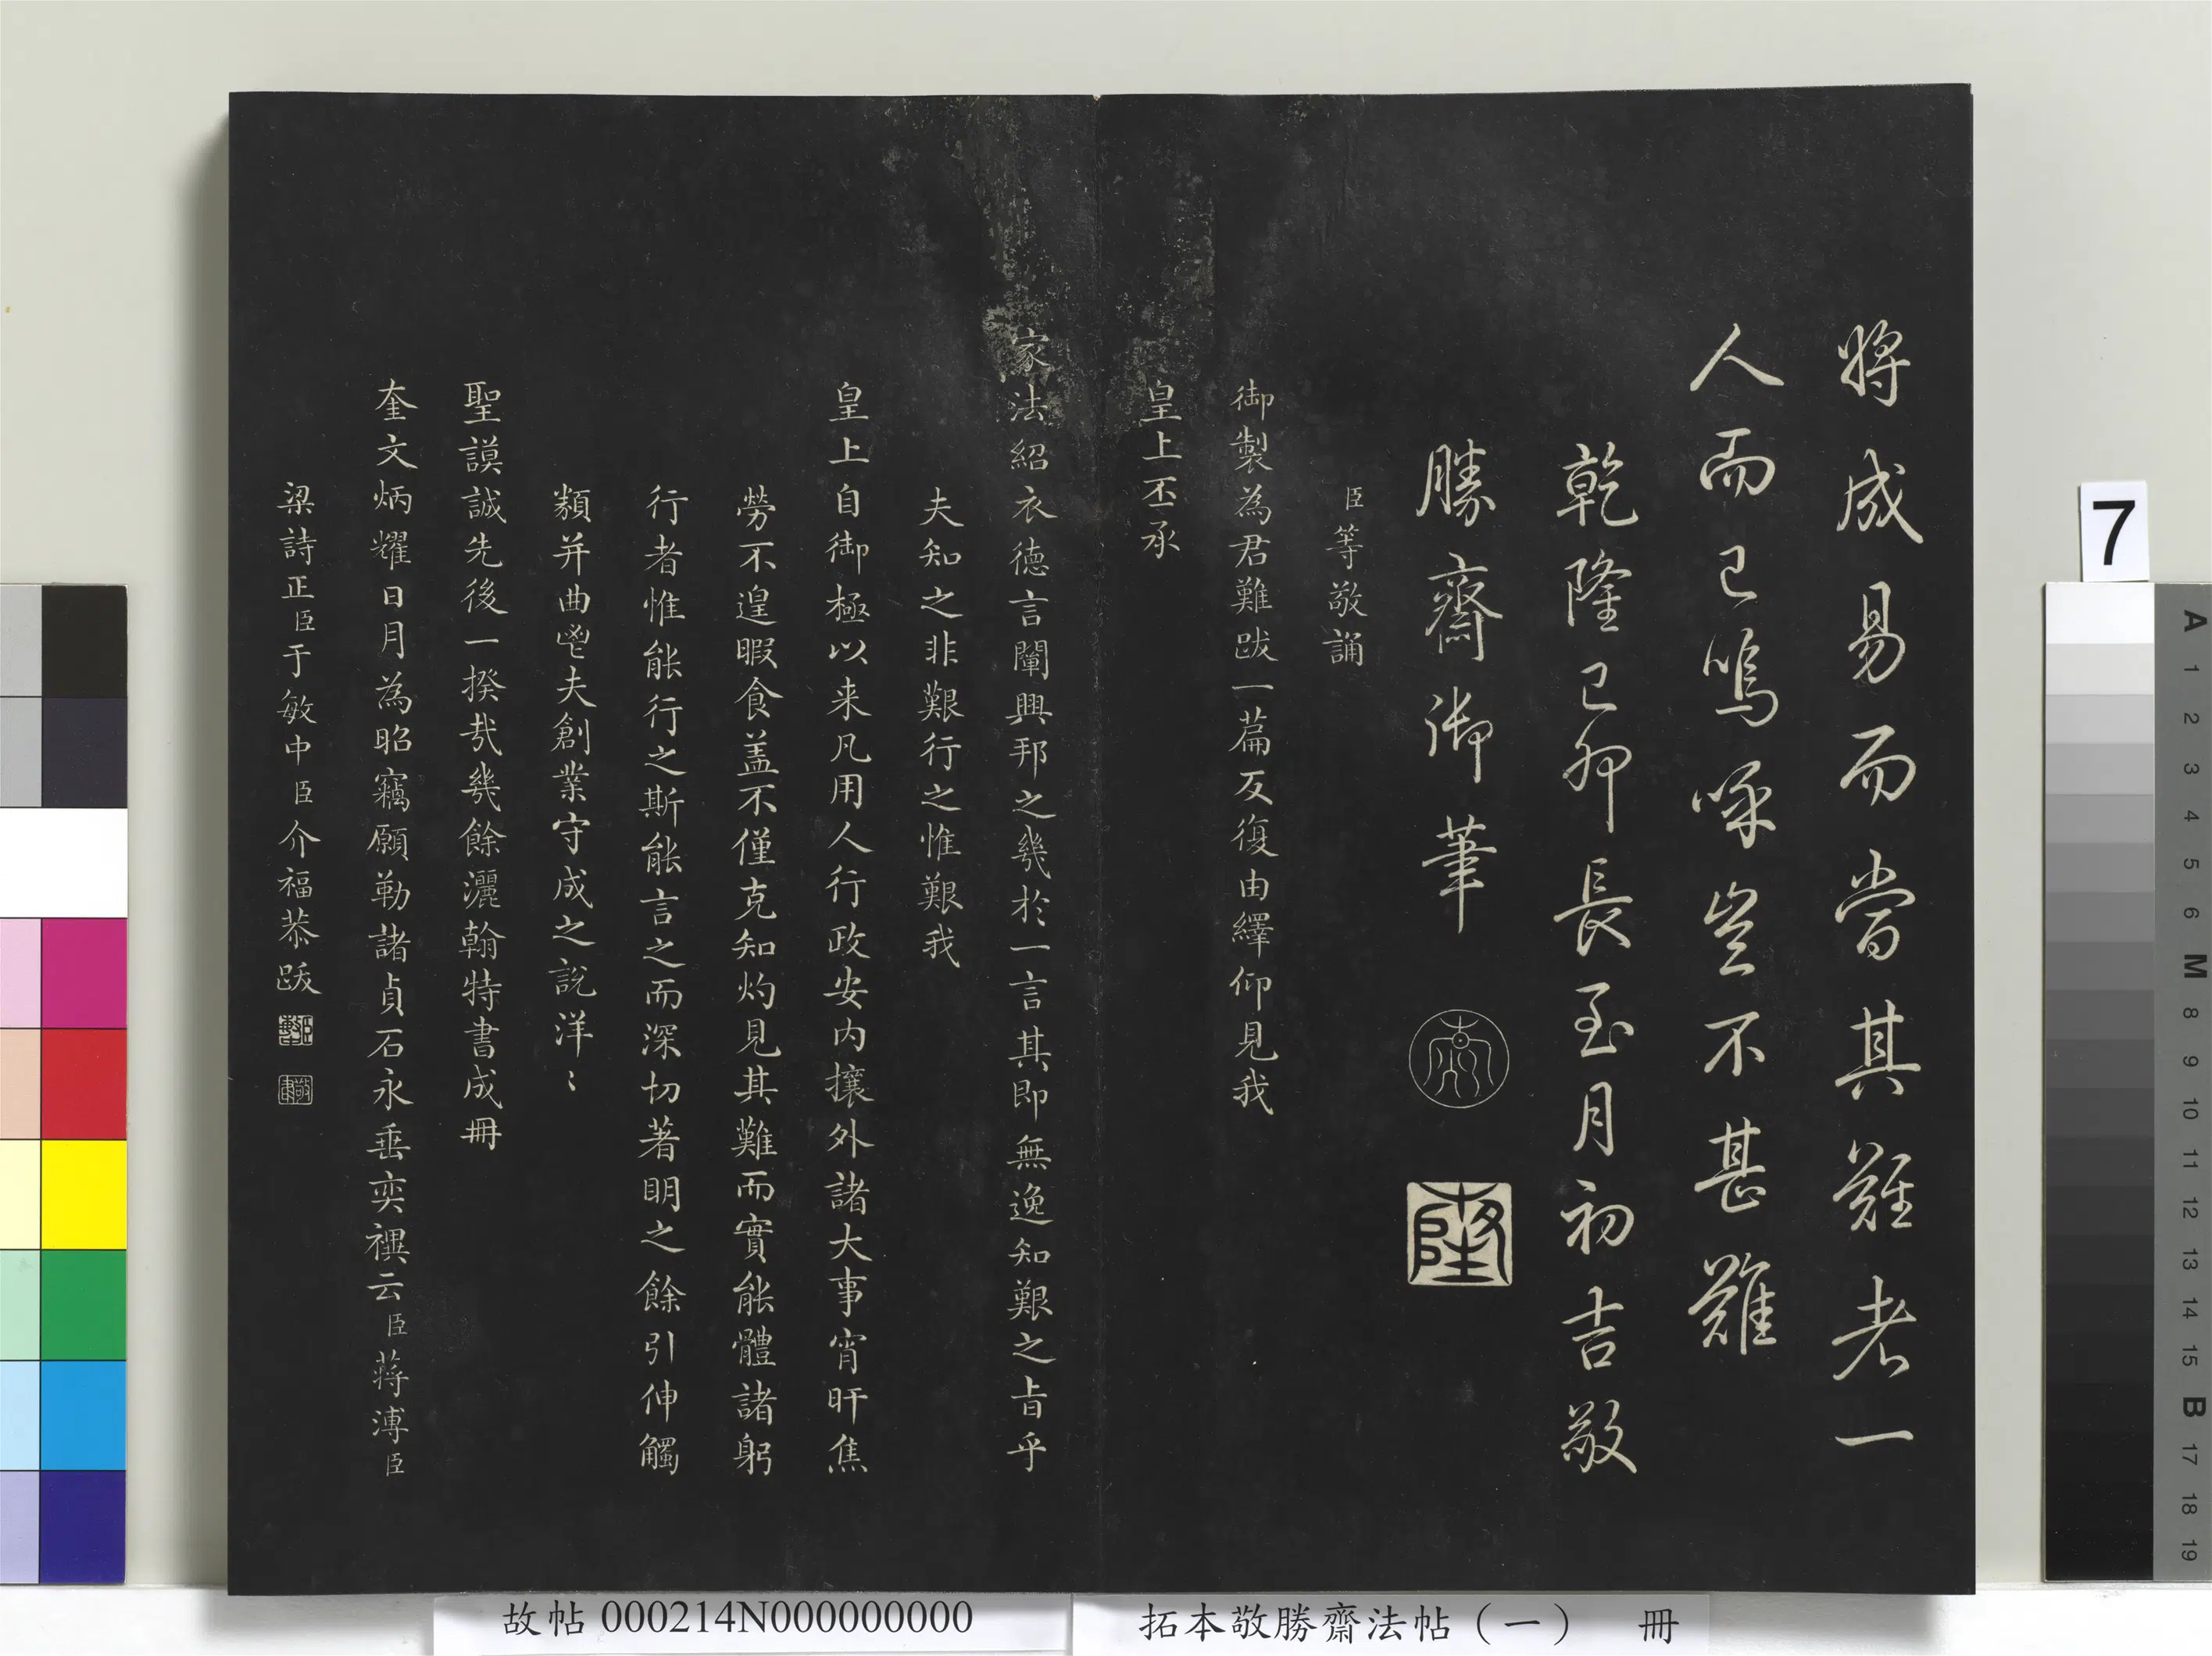 將成易而當其難者一
人而已嗚呼豈不甚難
乾隆己卯長至月初吉敬
勝齋御筆
隆
臣等敬誦
御製為君難跋一篇反復由繹仰見我
皇上丕承
家法紹衣德言闡興邦之幾於一言其即無逸知艱之旨乎
夫知之非艱行之惟艱我
皇上自御極以来凡用人行政安内攘外諸大事宵旰焦
勞不遑暇食盖不僅克知灼見其難而實能體諸躬
行者惟能行之斯能言之而深切著明之餘引伸觸
類并曲鬯夫創業守成之說洋〻
聖謨誠先後一揆哉幾餘灑翰特書成冊
奎文炳燿日月為昭竊願勒諸貞石永垂奕禩云臣蔣溥臣
梁詩正臣于敏中臣介福恭跋
7
故帖 000214N000000000
拓本敬勝齋法帖（一） 冊
A 1 2 3 4 5 6 M 8 9 10 11 12 13 14 15 B 17 18 19